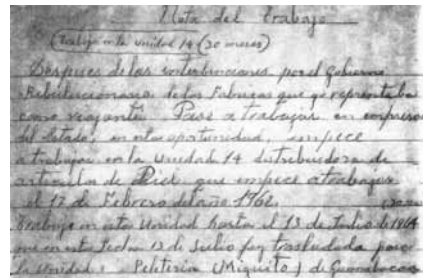 Nota del trabajo
(trabajo en la unidad 14 (20 meses)
Despues de las interbenciones por el Gobierno
Rebulucionario de las Fabricas que yo reprentaba
como viajante. Pase a trabajar en empresas
del estado, en esta oportunidad, empece
a trabajar en la Unidad 14 distribuidora de
articulos de Piel, que empice a trabajar
el 17 de Febrero del año 1962.
trabaje en esta Unidad hasta el 13 de Julio de 1964
en esta fecha 13 de Julio fuy trasladada para
la Unidad: Peleteria (Miguito) de Guanabacoa